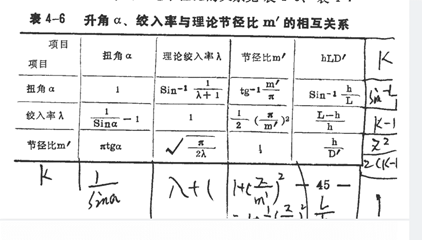 表4-6 升角α、绞入率与理论节径比m′的相互关系
项目 项目 扭角α 理论绞入率λ 节径比m′ hLD′ K
扭角α 1 Sin⁻¹ 1/(λ+1) tg⁻¹ m′/π Sin⁻¹ h/L
绞入率λ 1/Sinα − 1 1 1/2 (π/m′)² (L−h)/h K-1
节径比m′ πtgα √(π/2λ) 1 h/D′
K 1/sinα λ+1 — 45 —